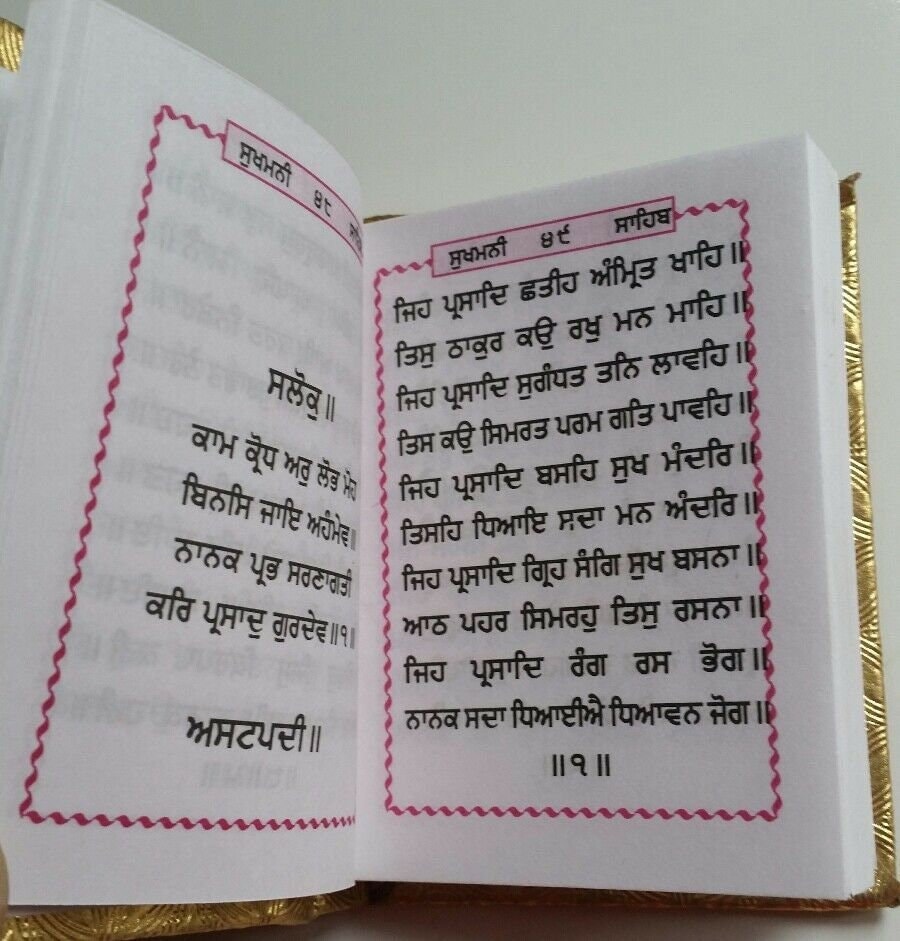 ਸੁਖਮਨੀ ੪੯
ਸਲੋਕੁ॥
ਕਾਮ ਕ੍ਰੋਧ ਅਰੁ ਲੋਭ ਮੋਹ
ਬਿਨਸਿ ਜਾਇ ਅਹੰਮੇਵ॥
ਨਾਨਕ ਪ੍ਰਭ ਸਰਣਾਗਤੀ
ਕਰਿ ਪ੍ਰਸਾਦੁ ਗੁਰਦੇਵ॥੧॥
ਅਸਟਪਦੀ॥
ਸੁਖਮਨੀ ੪੯ ਸਾਹਿਬ
ਜਿਹ ਪ੍ਰਸਾਦਿ ਛਤੀਹ ਅੰਮ੍ਰਿਤ ਖਾਹਿ॥
ਤਿਸੁ ਠਾਕੁਰ ਕਉ ਰਖੁ ਮਨ ਮਾਹਿ॥
ਜਿਹ ਪ੍ਰਸਾਦਿ ਸੁਗੰਧਤ ਤਨਿ ਲਾਵਹਿ॥
ਤਿਸ ਕਉ ਸਿਮਰਤ ਪਰਮ ਗਤਿ ਪਾਵਹਿ॥
ਜਿਹ ਪ੍ਰਸਾਦਿ ਬਸਹਿ ਸੁਖ ਮੰਦਰਿ॥
ਤਿਸਹਿ ਧਿਆਇ ਸਦਾ ਮਨ ਅੰਦਰਿ॥
ਜਿਹ ਪ੍ਰਸਾਦਿ ਗ੍ਰਿਹ ਸੰਗਿ ਸੁਖ ਬਸਨਾ॥
ਆਠ ਪਹਰ ਸਿਮਰਹੁ ਤਿਸੁ ਰਸਨਾ॥
ਜਿਹ ਪ੍ਰਸਾਦਿ ਰੰਗ ਰਸ ਭੋਗ॥
ਨਾਨਕ ਸਦਾ ਧਿਆਈਐ ਧਿਆਵਨ ਜੋਗ॥
॥੧॥